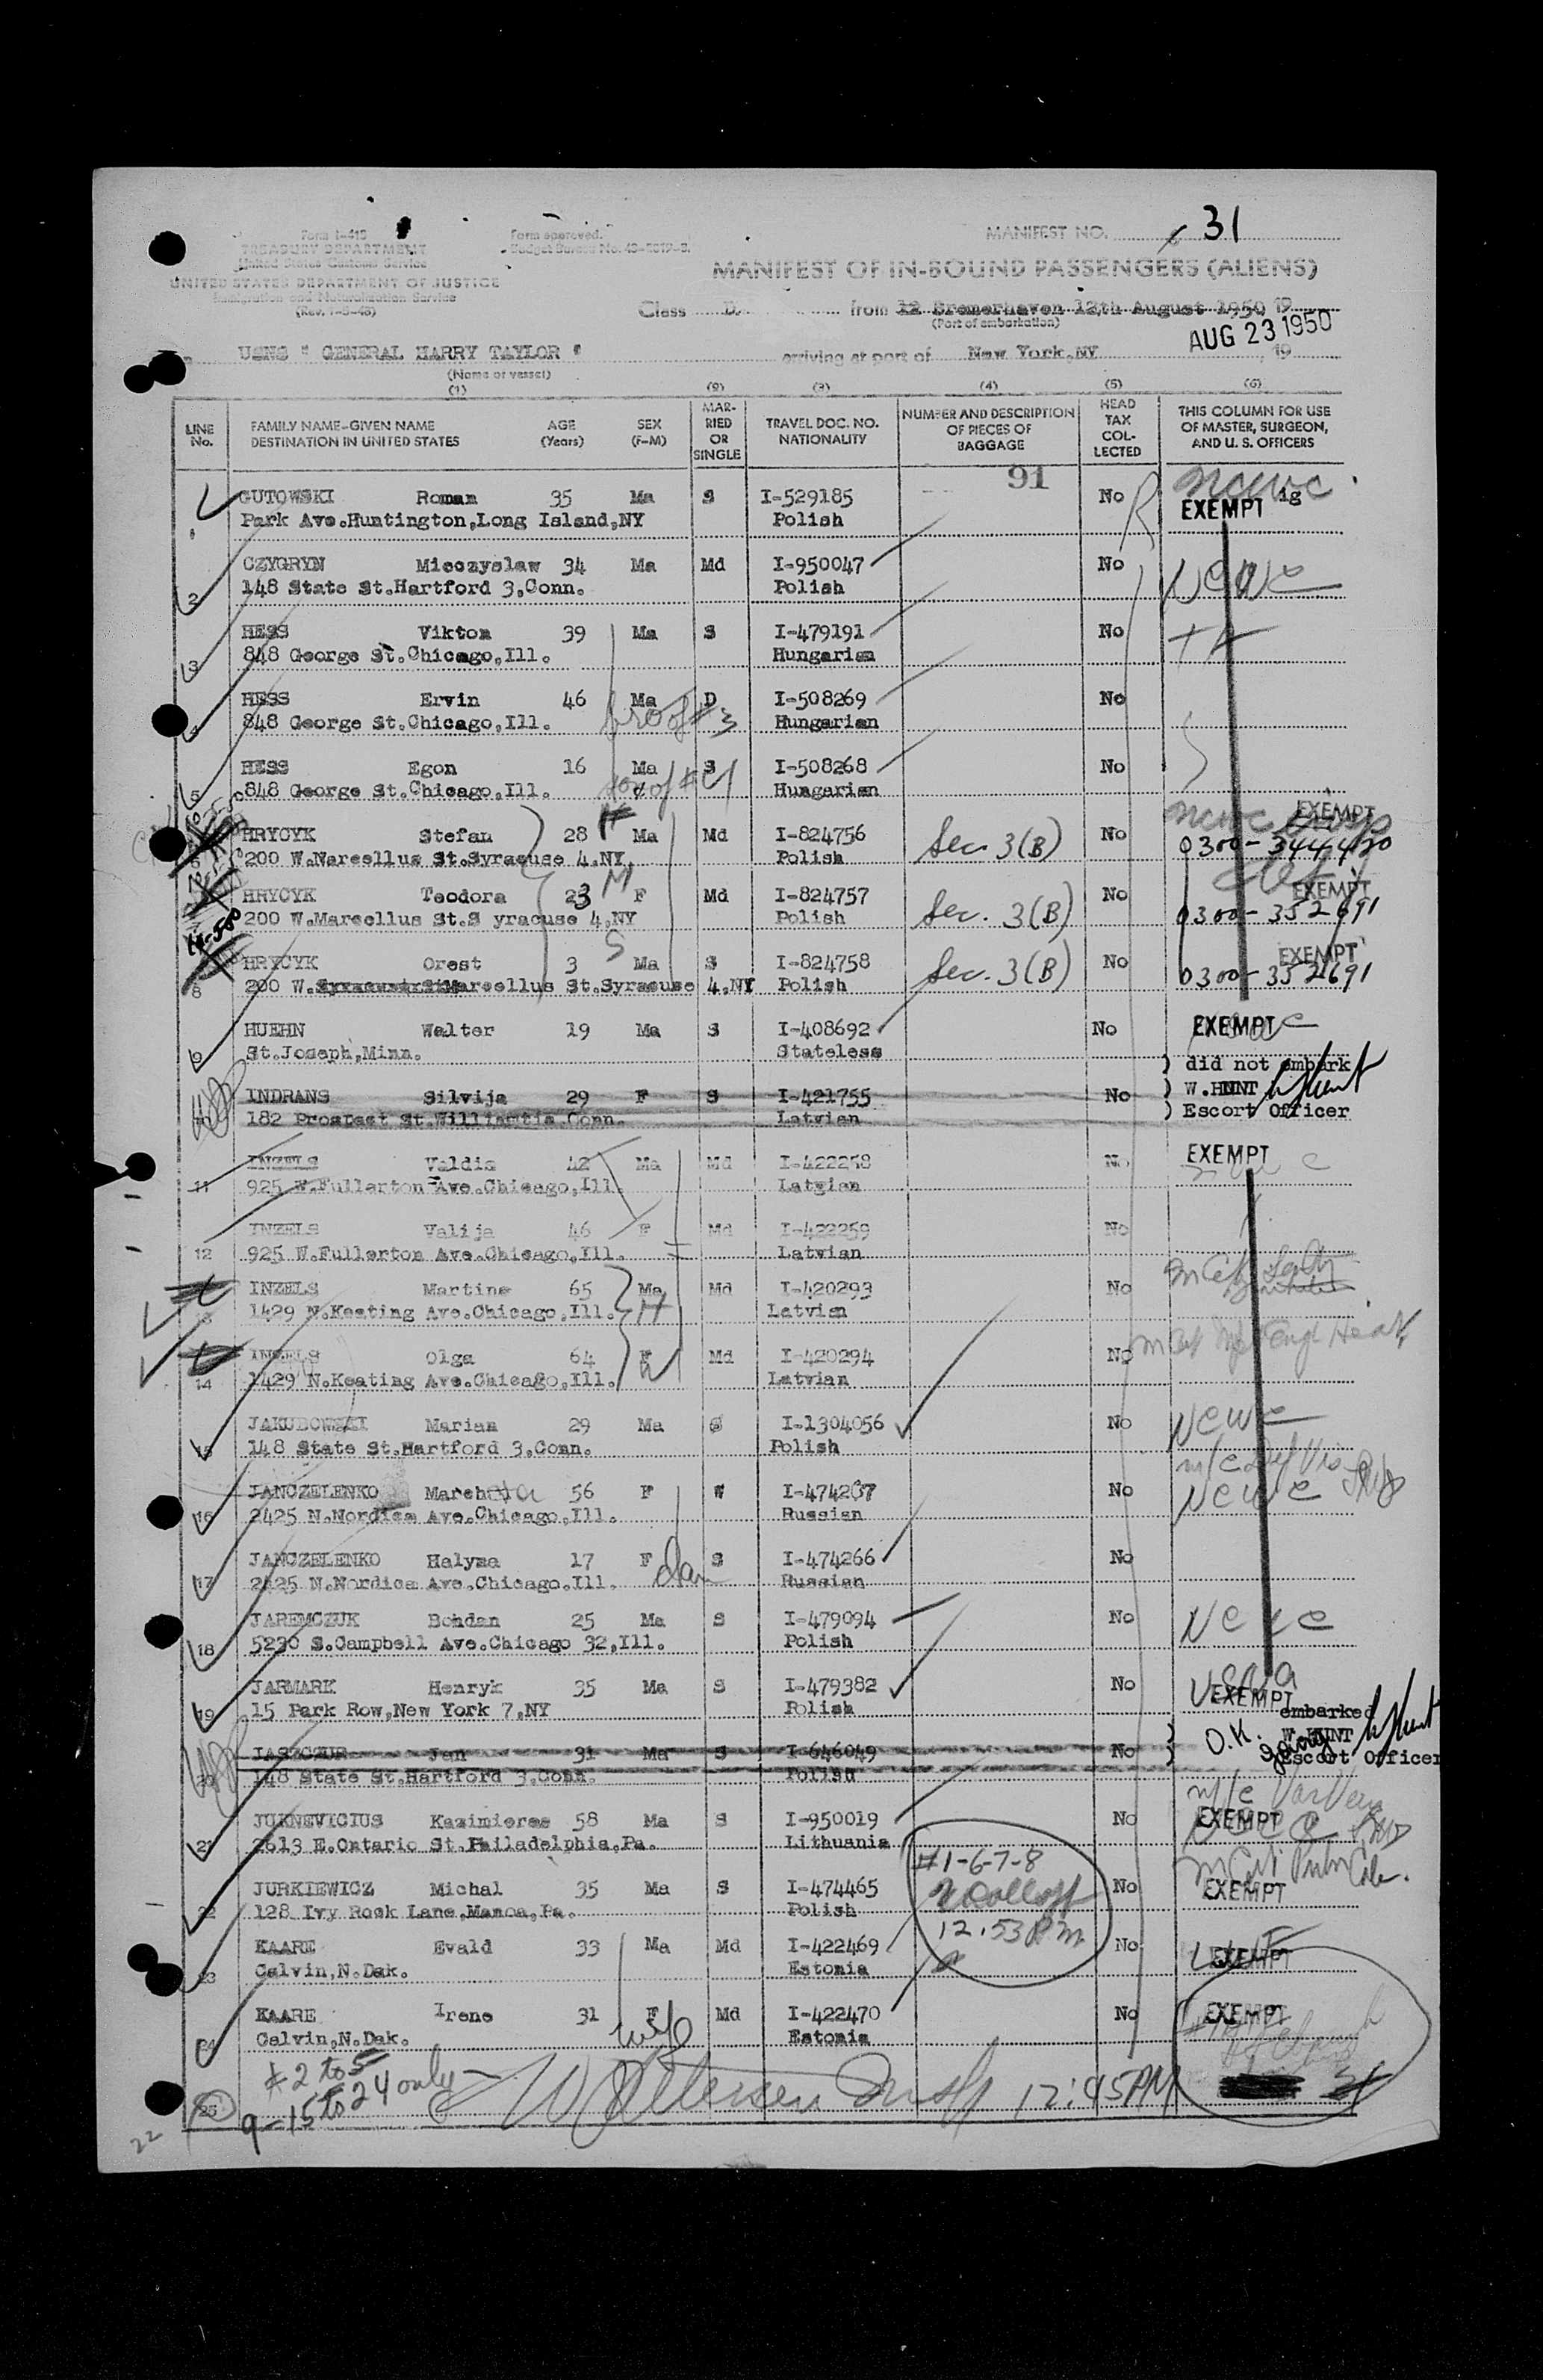 MANIFEST NO. 31
Form I-415
TREASURY DEPARTMENT
United States Customs Service
UNITED STATES DEPARTMENT OF JUSTICE
Immigration and Naturalization Service
Form approved.
Budget Bureau No.
MANIFEST OF IN-BOUND PASSENGERS (ALIENS)
Class D. from 12 Bremerhaven 12th August 1950 19
(Port of embarkation)
AUG 23 1950
USNS " GENERAL HARRY TAYLOR " arriving at port of New York,NY , 19
(Name of vessel)
(1) (2) (3) (4) (5) (6)
LINE No. FAMILY NAME-GIVEN NAME DESTINATION IN UNITED STATES AGE (Years) SEX (F-M) MARRIED OR SINGLE TRAVEL DOC. NO. NATIONALITY NUMBER AND DESCRIPTION OF PIECES OF BAGGAGE HEAD TAX COLLECTED THIS COLUMN FOR USE OF MASTER, SURGEON, AND U. S. OFFICERS
91
GUTOWSKI Roman 35 Ma S I-529185 No ncwc ig
1 Park Ave.Huntington,Long Island,NY Polish EXEMPT
CZYGRYN Mieczyslaw 34 Ma Md I-950047 No
2 148 State St.Hartford 3,Conn. Polish ncwc
HESS Viktor 39 Ma S I-479191 No
3 848 George St.Chicago,Ill. Hungarian
HESS Ervin 46 Ma D I-508269 No
4 848 George St.Chicago,Ill. bro of #3 Hungarian
HESS Egon 16 Ma S I-508268 No
5 848 George St.Chicago,Ill. son of #4 Hungarian
HRYCYK Stefan 28 H Ma Md I-824756 Sec 3(B) No ncwc EXEMPT
6 200 W.Marcellus St.Syracuse 4,NY Polish 0300-344430
HRYCYK Teodora 23 M F Md I-824757 Sec. 3(B) No EXEMPT
200 W.Marcellus St.S yracuse 4,NY Polish 0300-352691
HRYCYK Orest 3 S Ma S I-824758 Sec. 3(B) No EXEMPT
8 200 W. Marcellus St.Syracuse 4,NY Polish 0300-352691
HUEHN Walter 19 Ma S I-408692 No EXEMPT
9 St.Joseph,Minn. Stateless
) did not embark
INDRANS Silvija 29 F S I-421755 No ) W.HUNT
10 182 Prospect St.Willimantic.Conn. Latvian ) Escort Officer
INZELS Valdis 42 Ma Md I-422258 No EXEMPT
11 925 W.Fullerton Ave.Chicago,Ill. Latvian
INZELS Valija 46 F Md I-422259 No
12 925 W.Fullerton Ave.Chicago,Ill. Latvian
INZELS Martins 65 Ma Md I-420293 No
13 1429 N.Keating Ave.Chicago,Ill. H Latvian
INZELS Olga 64 F Md I-420294 No
14 1429 N.Keating Ave.Chicago,Ill. W Latvian
JAKUBOWSKI Marian 29 Ma S I-1304056 No ncwc
15 148 State St.Hartford 3,Conn. Polish
JANCZELENKO 56 F W I-474267 No ncwc
16 2425 N.Nordica Ave.Chicago,Ill. Russian
JANCZELENKO Halyna 17 F S I-474266 No
17 2425 N.Nordica Ave.Chicago,Ill. dau Russian
JAREMCZUK Bohdan 25 Ma S I-479094 No ncwc
18 5230 S.Campbell Ave.Chicago 32,Ill. Polish
JARMARK Henryk 35 Ma S I-479382 No
19 15 Park Row,New York 7,NY Polish EXEMPT
embarked
JASZCZUR Jan 31 Ma S I-646049 No ) O.K. W.HUNT
20 148 State St.Hartford 3,Conn. Polish Escort Officer
JUKNEVICIUS Kazimieras 58 Ma S I-950019 No EXEMPT
21 2613 E.Ontario St.Philadelphia,Pa. Lithuania
JURKIEWICZ Michal 35 Ma S I-474465 No EXEMPT
22 128 Ivy Rock Lane,Manoa,Pa. Polish
#1-6-7-8
12.53 PM
KAARE Evald 33 Ma Md I-422469 No EXEMPT
23 Calvin,N.Dak. Estonia
KAARE Irene 31 F Md I-422470 No EXEMPT
24 Calvin,N.Dak. wife Estonia
# 2 to 5
25 9-15 to 24 only Insp 12:45PM
22